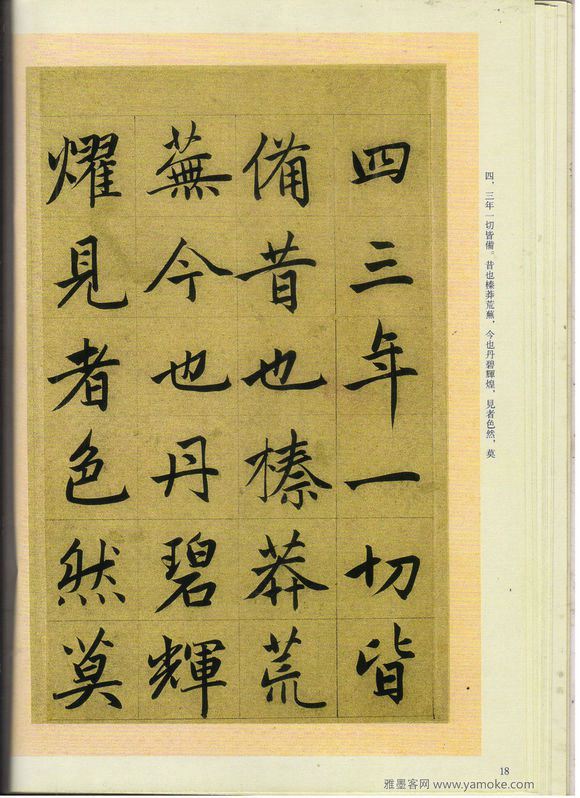 四三年一切皆
備昔也榛莽荒
蕪今也丹碧輝
燿見者色然莫
四、三年一切皆備。昔也榛莽荒蕪，今也丹碧輝煌，見者色然，莫
18
雅墨客网 www.yamoke.com